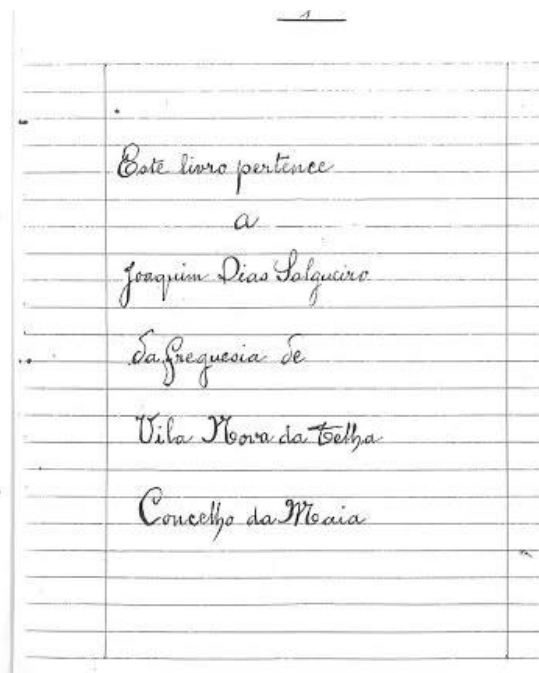 1
Este livro pertence
a
Joaquim Dias Salgueiro
da freguesia de
Vila Nova da Telha
Concelho da Maia